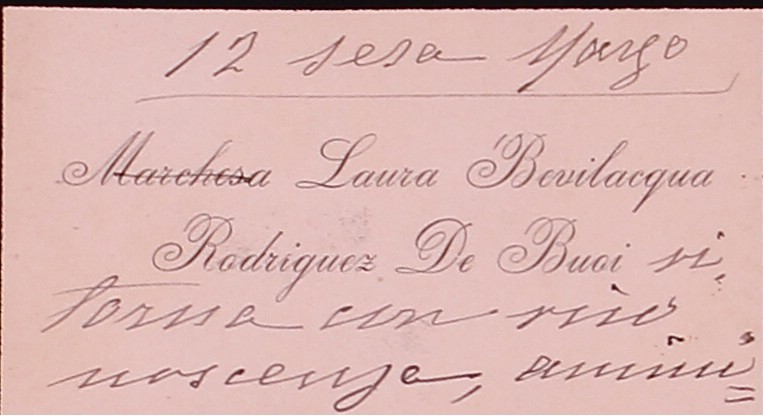 12 sera Marzo
Marchesa Laura Bevilacqua
Rodriguez De Buoi ri-
torna con rico
noscenza, ammi=